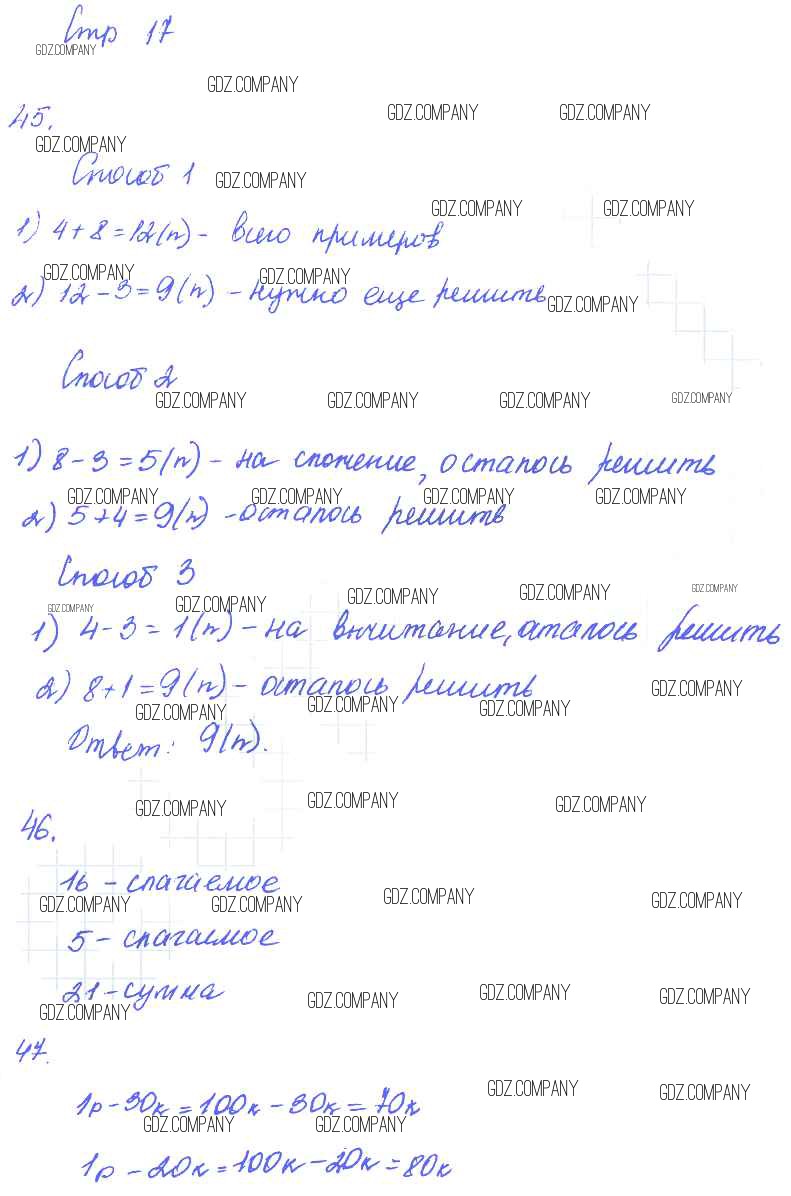 Стр 17
GDZ.COMPANY
GDZ.COMPANY
GDZ.COMPANY GDZ.COMPANY
45.
GDZ.COMPANY
Способ 1 GDZ.COMPANY
GDZ.COMPANY GDZ.COMPANY
1) 4+8=12(п) - всего примеров
GDZ.COMPANY GDZ.COMPANY
2) 12-3=9(п) - нужно еще решить
GDZ.COMPANY
Способ 2
GDZ.COMPANY GDZ.COMPANY GDZ.COMPANY GDZ.COMPANY
1) 8-3=5(п) - на сложение, осталось решить
GDZ.COMPANY GDZ.COMPANY GDZ.COMPANY GDZ.COMPANY
2) 5+4=9(п) - осталось решить
Способ 3
GDZ.COMPANY GDZ.COMPANY GDZ.COMPANY GDZ.COMPANY GDZ.COMPANY
1) 4-3=1(п) - на вычитание, аталось решить
2) 8+1=9(п) - осталось решить
GDZ.COMPANY GDZ.COMPANY GDZ.COMPANY GDZ.COMPANY
Ответ: 9(п).
GDZ.COMPANY GDZ.COMPANY GDZ.COMPANY
46.
16 - слагаемое
GDZ.COMPANY GDZ.COMPANY GDZ.COMPANY GDZ.COMPANY
5 - слагаемое
21 - сумма
GDZ.COMPANY GDZ.COMPANY GDZ.COMPANY GDZ.COMPANY
47.
GDZ.COMPANY GDZ.COMPANY
1р-30к=100к-30к=70к
GDZ.COMPANY GDZ.COMPANY
1р-20к=100к-20к=80к